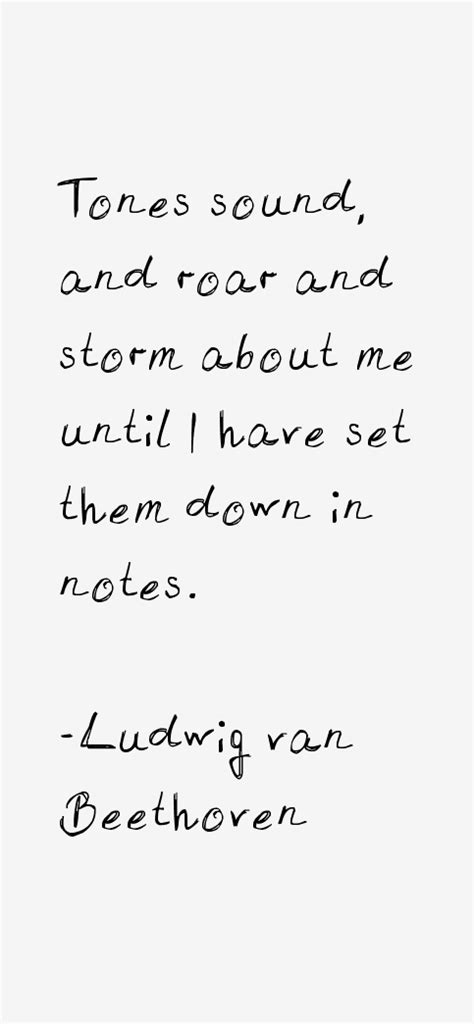 Tones sound,
and roar and
storm about me
until I have set
them down in
notes.
-Ludwig van
Beethoven